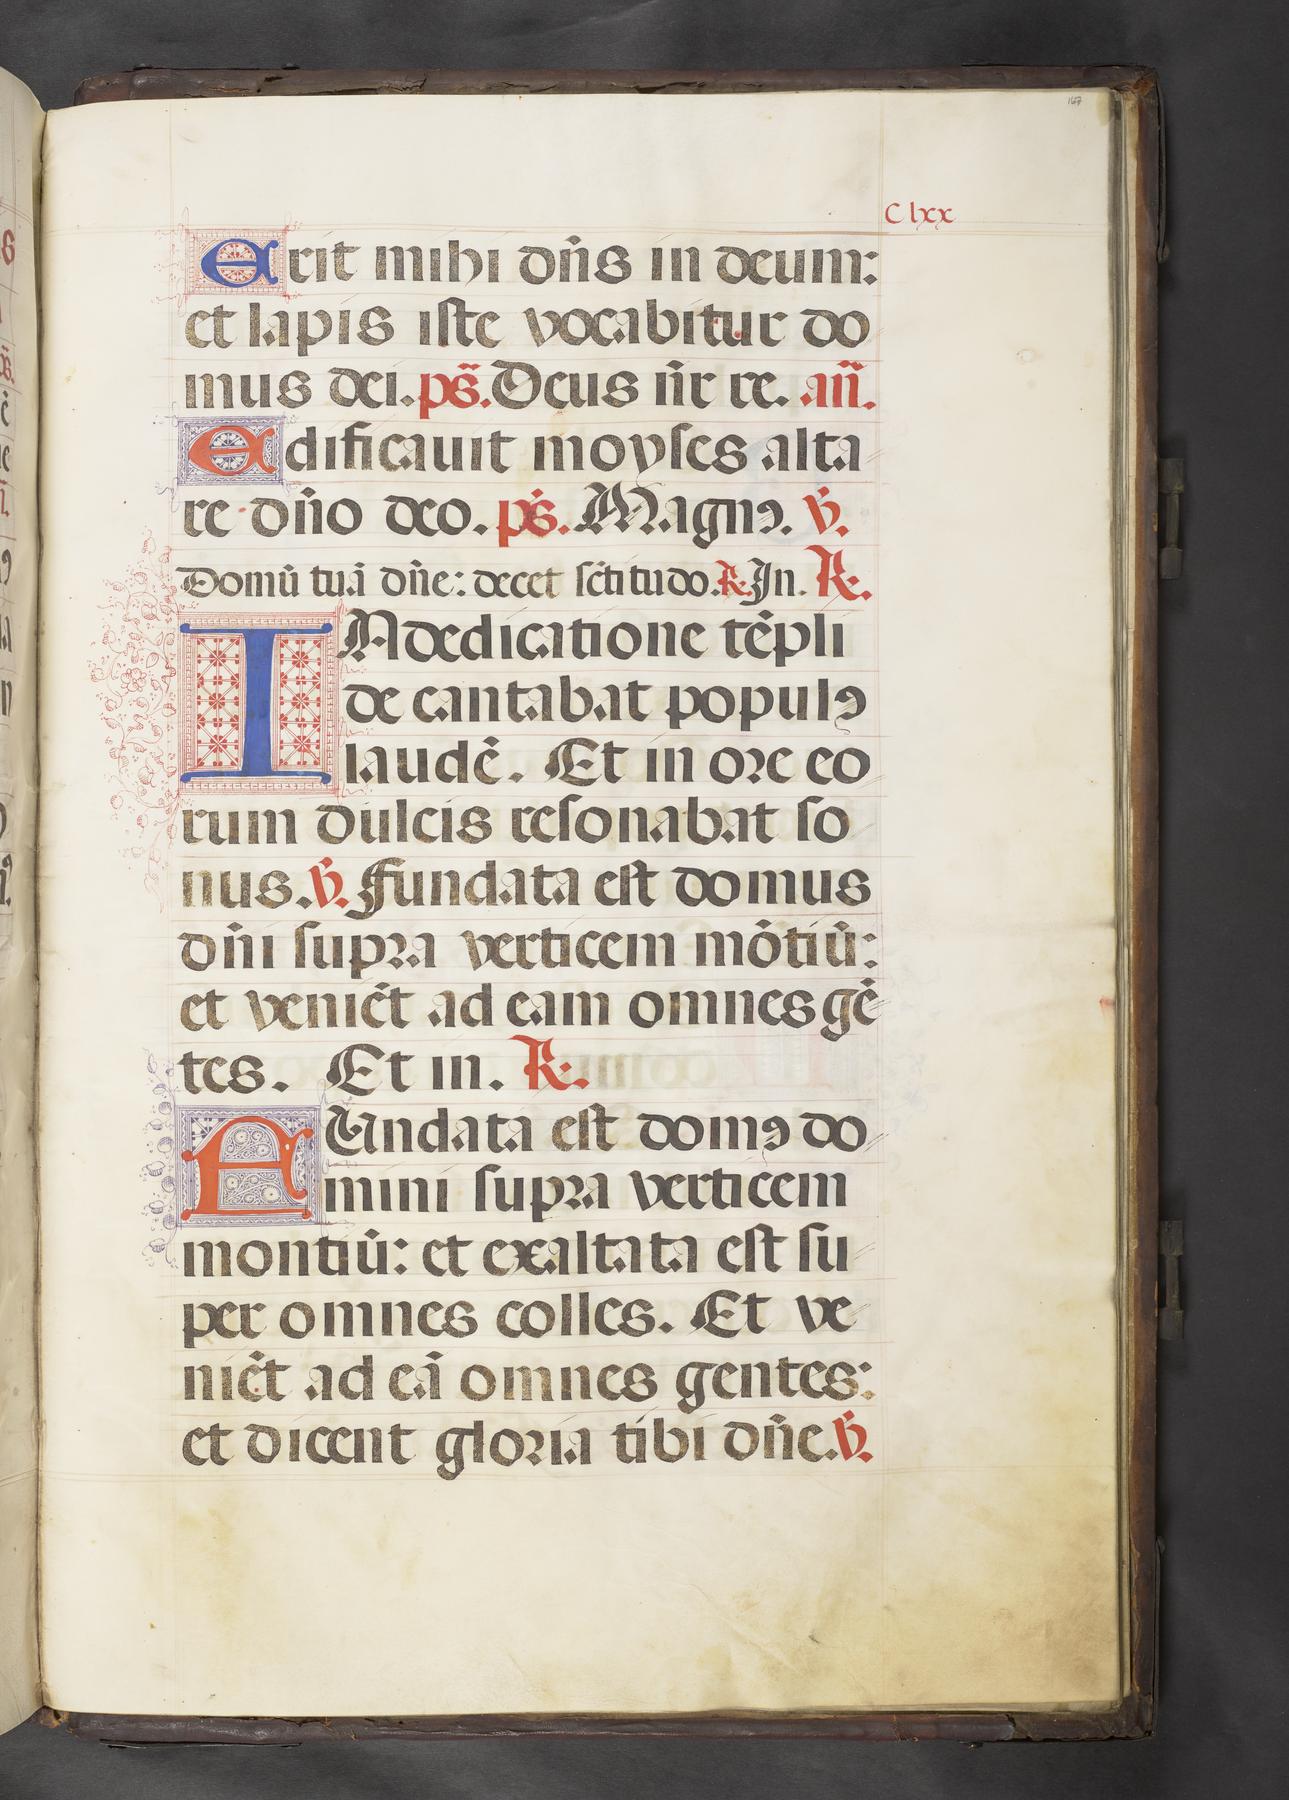 167
Clxx
Erit mihi dn̄s in deum:
et lapis iste vocabitur do
mus dei. ps̄. Deus nr̄ re. an̄.
Edificauit moyses alta
re dn̄o deo. ps̄. Magnꝯ. ꝟ.
Domū tuā dn̄e: decet sc̄titudo. ℟. In. ℟.
IN dedicatione tēpli
de cantabat populꝯ
laudē. Et in ore eo
rum dulcis resonabat so
nus. ꝟ. Fundata est domus
dn̄i supra verticem mōtiū:
et veniēt ad eam omnes gē
tes. Et in. ℟.
FUndata est domꝯ do
mini supra verticem
montiū: et exaltata est su
per omnes colles. Et ve
niēt ad eā omnes gentes:
et dicent gloria tibi dn̄e. ꝟ.